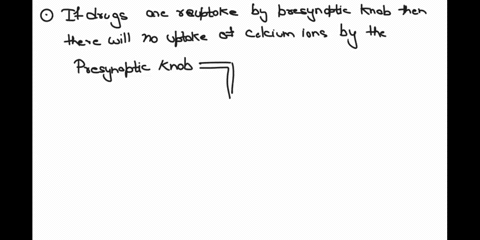 If drugs are reuptake by presynaptic knob then
there will no uptake of calcium ions by the
Presynaptic knob